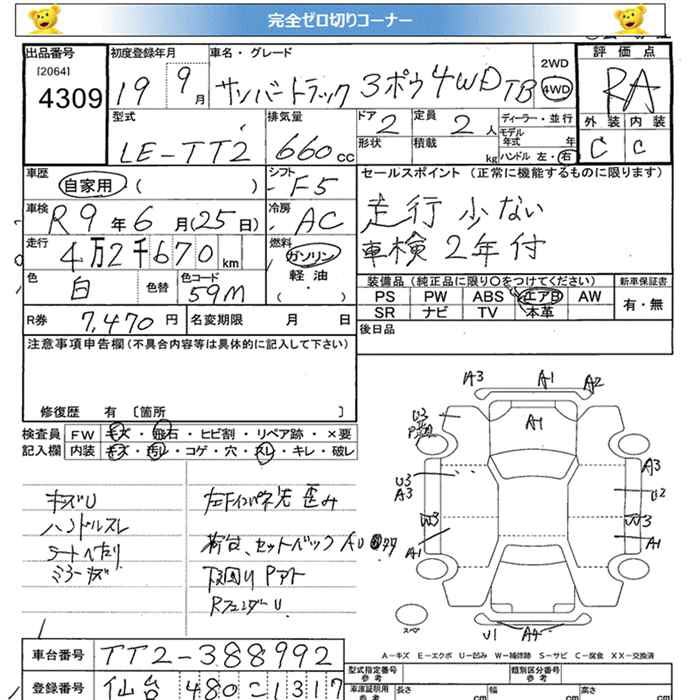 完全ゼロ切りコーナー
出品番号 初度登録年月 車名・グレード 2WD 評価点
[2064]
4309 19 9月 サンバートラック 3ポウ 4WD TB 4WD RA
型式 排気量 ドア 定員 ディーラー・並行 外装 内装
LE-TT2 660cc 2 2人 モデル年式 年 C C
形状 積載 kg ハンドル 左・右
車歴 シフト セールスポイント (正常に機能するものに限ります)
自家用 ( ) F5
車検 冷房 走行 少ない
R9年6月(25日) AC 車検 2年付
走行 燃料
4万2千670km ガソリン
色 色替 色コード 軽油
白 59M ( ・ )
装備品 (純正品に限り○をつけてください) 新車保証書
PS PW ABS エアB AW 有・無
SR ナビ TV 本革
R券 7,470円 名変期限 月 日 後日品
注意事項申告欄 (不具合内容等は具体的に記入して下さい)
修復歴 有 [箇所 ]
検査員 FW キズ・飛石・ヒビ割・リペア跡・×要
記入欄 内装 キズ・汚れ・コゲ・穴・スレ・キレ・破レ
キズU
ハンドルスレ
シートへたり
ミラーキズ
左インパネ先 歪み
荷台、セットバック AU
下回り Pアト
RフェンダーU
A3 A1 A2
A1
U3
U3
A3
W3
A1
A3
U2
W3
A1
U1 A4
スペア
A―キズ E―エクボ U―凹み W―補修跡 S―サビ C―腐食 XX―交換済
車台番号 TT2-388992
登録番号 仙台 480 こ 1317
型式指定番号 参考 類別区分番号 参考
車庫証明用 参考 長さ cm 幅 cm 高さ cm